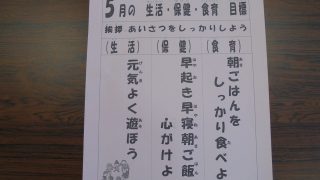 5月の 生活・保健・食育 目標
挨拶 あいさつをしっかりしよう
(食育)
朝ごはんを
しっかり食べよ
(保健)
早起き早寝朝ご飯
心がけよ
(生活)
元気よく遊ぼう